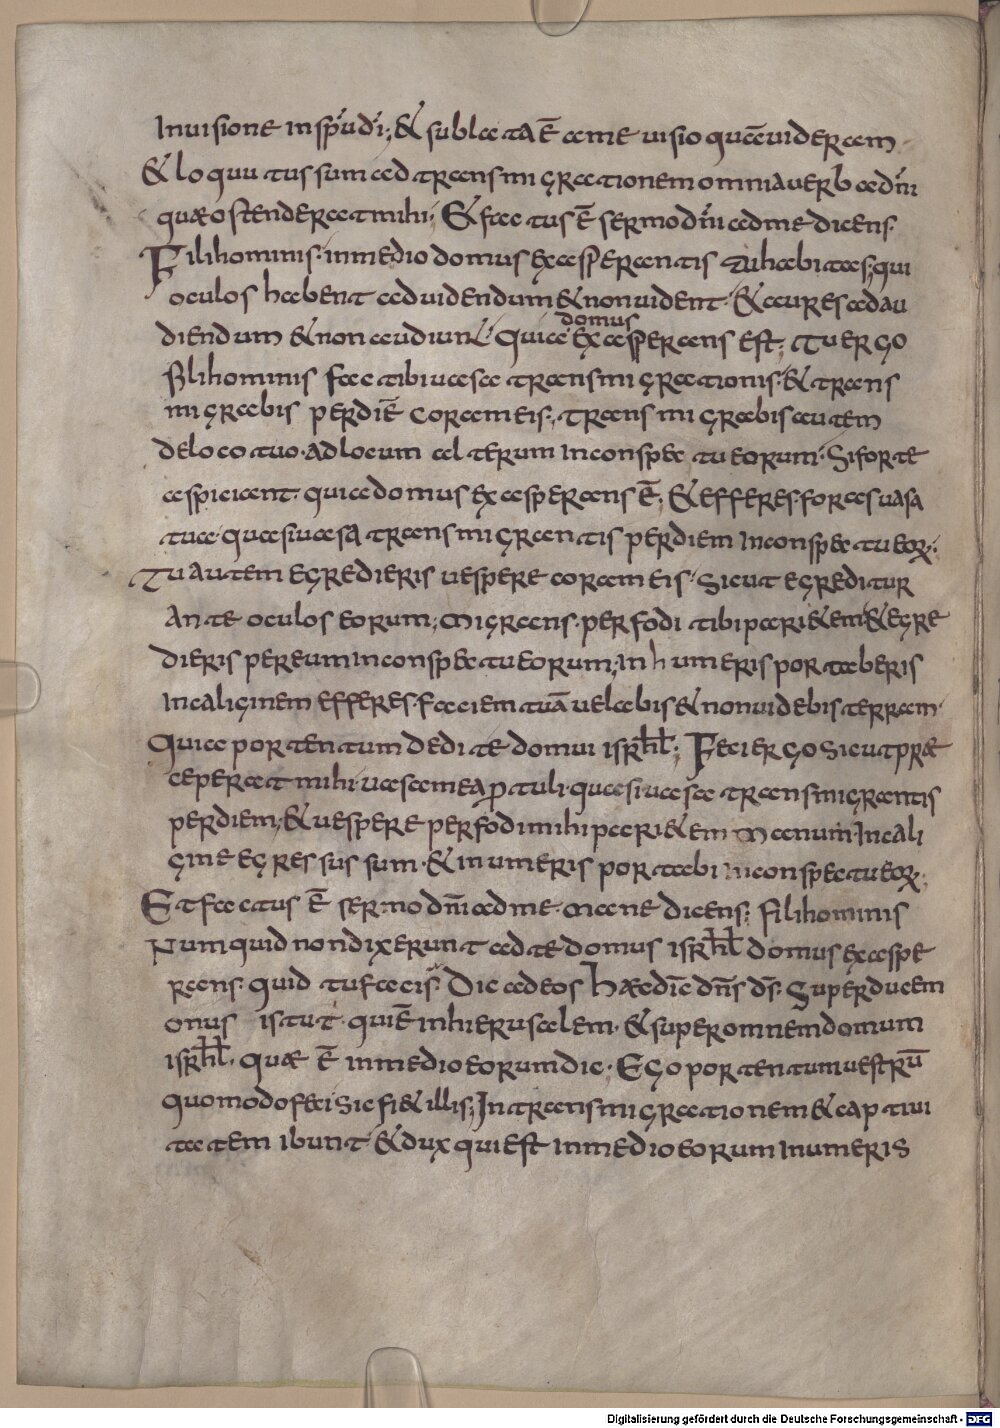 In uisione in sp̄u dī; & sublata ē a me uisio quā uideram
& locutus sum ad transmigrationem omnia uerba dn̄i
quæ ostenderat mihi; & factus ē sermo dn̄i ad me dicens.
Fili hominis. in medio domus exasperantis tu habitas; qui
oculos habent ad uidendum & non uident. & aures ad au
diendum & non audiunt. quia domus exasperans est; Tu ergo
fili hominis fac tibi uasa transmigrationis. & trans
migrabis per diē coram eis; transmigrabis autem
de loco tuo. ad locum alterum in conspectu eorum. Si forte
aspiciant. quia domus exasperans ē; & efferes foras uasa
tua. quasi uasa transmigrantis per diem in conspectu eoꝝ;
Tu autem egredieris uespere coram eis. sicut egreditur
Ante oculos eorum; migrans. perfodi tibi pari&em & egre
dieris per eum in conspectu eorum; in humeris portaberis
In caliginem efferes. faciem tuā uelabis & non uidebis terram.
Quia portentum dedi te domui isrhl; Feci ergo sicut præ
ceperat mihi. uasa mea ꝓtuli. quasi uasa transmigrantis
per diem; & uespere perfodi mihi pari&em manum. In cali
gine egressus sum. & in umeris portabi in conspectu eoꝝ;
Et factus ē sermo dn̄i ad me. mane dicens; fili hominis
Numquid non dixerunt ad te domus isrhl domus exaspe
rans. quid tu facis. Dic ad eos hæc dīc dn̄s ds̄. Super ducem
onus istut. qui ē in hierusalem. & super omnem domum
isrhl. quæ ē in medio eorum dic. Ego portentum uestrū
quomodo feci sic fi& illis; In transmigrationem & captiui
tatem ibunt. & dux qui est in medio eorum in umeris
Digitalisierung gefördert durch die Deutsche Forschungsgemeinschaft - DFG